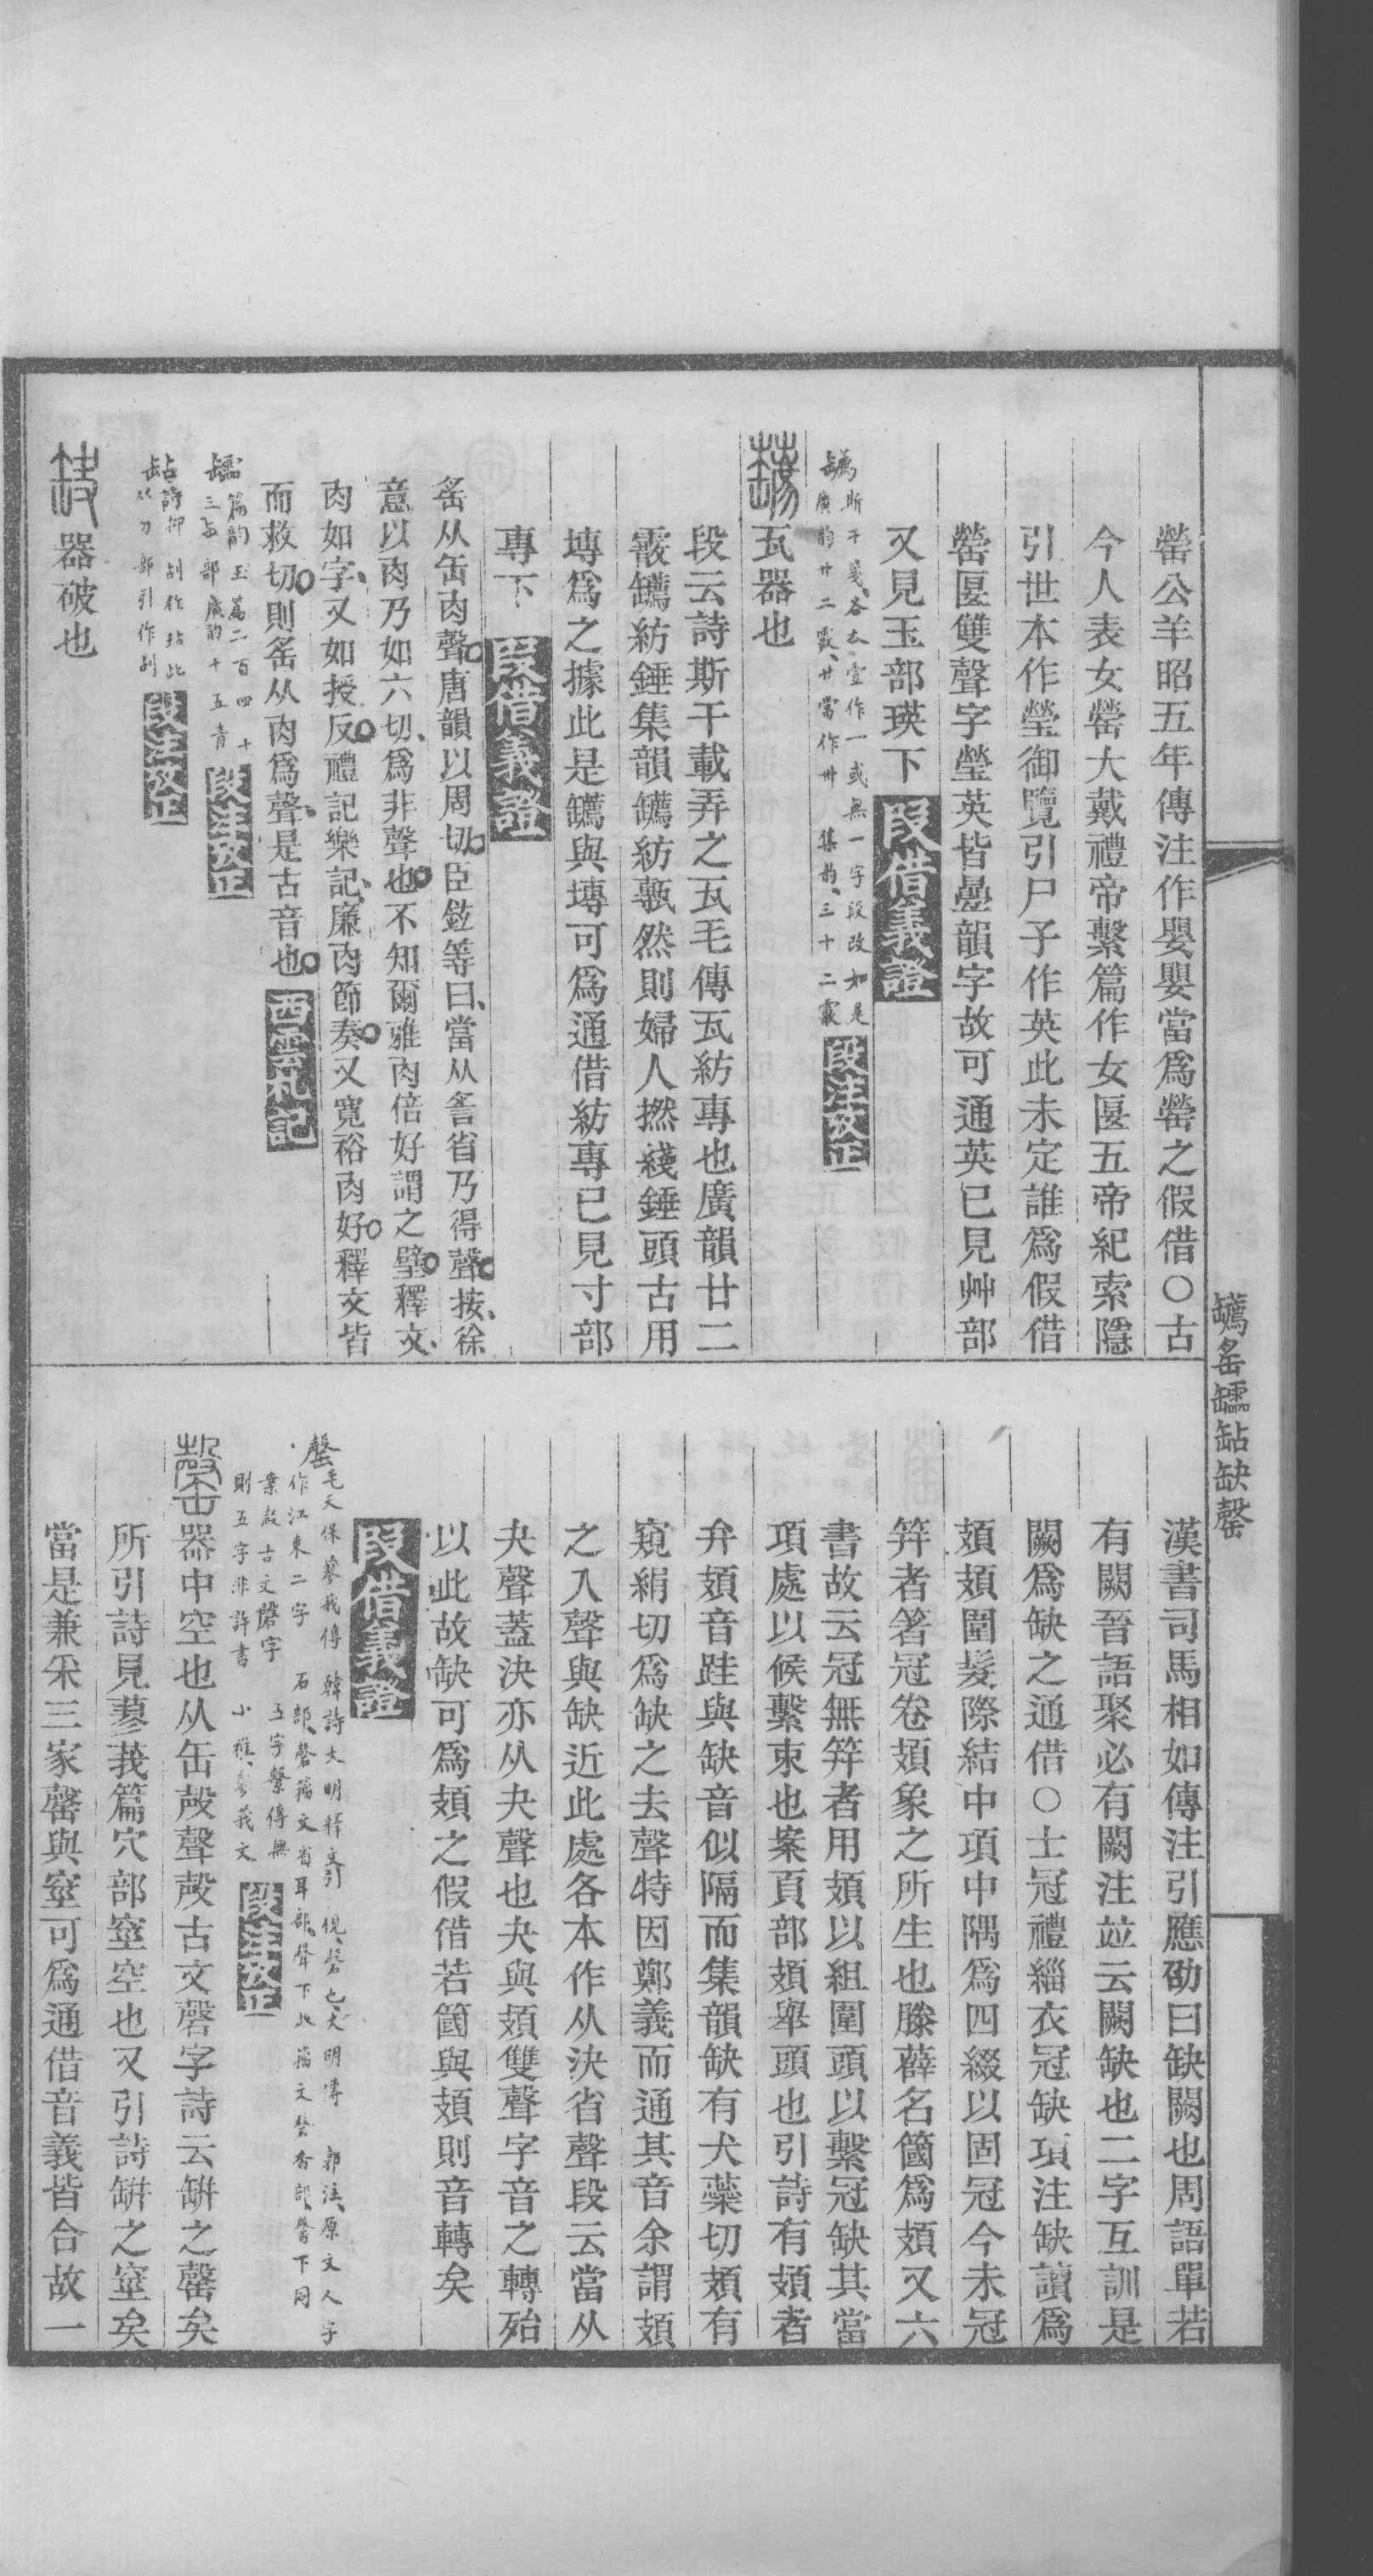 罃公羊昭五年傳注作嬰嬰當爲罃之假借○古
今人表女罃大戴禮帝繫篇作女匽五帝紀索隱
引世本作瑩御覽引尸子作英此未定誰爲假借
罃匽雙聲字瑩英皆疊韻字故可通英已見艸部
又見玉部瑛下 段借義證
斯干箋各本壹作一或無一字段改如是
廣韵廿二霰廿當作卅 集韵三十二霰 段注攷正
瓦器也
段云詩斯干載弄之瓦毛傳瓦紡專也廣韻廿二
霰䥥紡錘集韻䥥紡甎然則婦人撚綫錘頭古用
塼爲之據此是䥥與塼可爲通借紡專已見寸部
專下 段借義證
䍃从缶肉聲唐韻以周切臣鉉等曰當从䚻省乃得聲按徐
意以肉乃如六切爲非聲也不知爾雅肉倍好謂之璧釋文
肉如字又如授反禮記樂記廉肉節奏又寬裕肉好釋文皆
而救切則䍃从肉爲聲是古音也 西雲札記
篇韵玉篇二百四十
三缶部廣韵十五青 段注攷正
詩抑 刮作玷此
从刀部引作刮 段注攷正
缺 器破也
䥥䍃𦉥𦈻缺罄
漢書司馬相如傳注引應劭曰缺闕也周語單若
有闕晉語聚必有闕注竝云闕缺也二字互訓是
闕爲缺之通借○士冠禮緇衣冠缺項注缺讀爲
頍頍圍髮際結中項中隅爲四綴以固冠今未冠
笄者箸冠卷頍象之所生也滕薛名簂爲頍又六
書故云冠無笄者用頍以組圍頭以繫冠缺其當
項處以候繫束也案頁部頍舉頭也引詩有頍者
弁頍音跬與缺音似隔而集韻缺有犬蘂切頍有
窺絹切爲缺之去聲特因鄭義而通其音余謂頍
之入聲與缺近此處各本作从決省聲段云當从
夬聲蓋決亦从夬聲也夬與頍雙聲字音之轉殆
以此故缺可爲頍之假借若簂與頍則音轉矣
段借義證
罄毛天保蓼莪傳 韓詩大明釋文引 俔磬也大明傳 郭注原文人字
作江東二字 石部磬籒文省耳部聲下此籒文磬香部馨下同
業殸古文磬字 五字繫傳無
則五字非許書 小雅蓼莪文 段注攷正
罄 器中空也从缶殸聲殸古文磬字詩云缾之罄矣
所引詩見蓼莪篇穴部窒空也又引詩缾之窒矣
當是兼采三家罄與窒可爲通借音義皆合故一